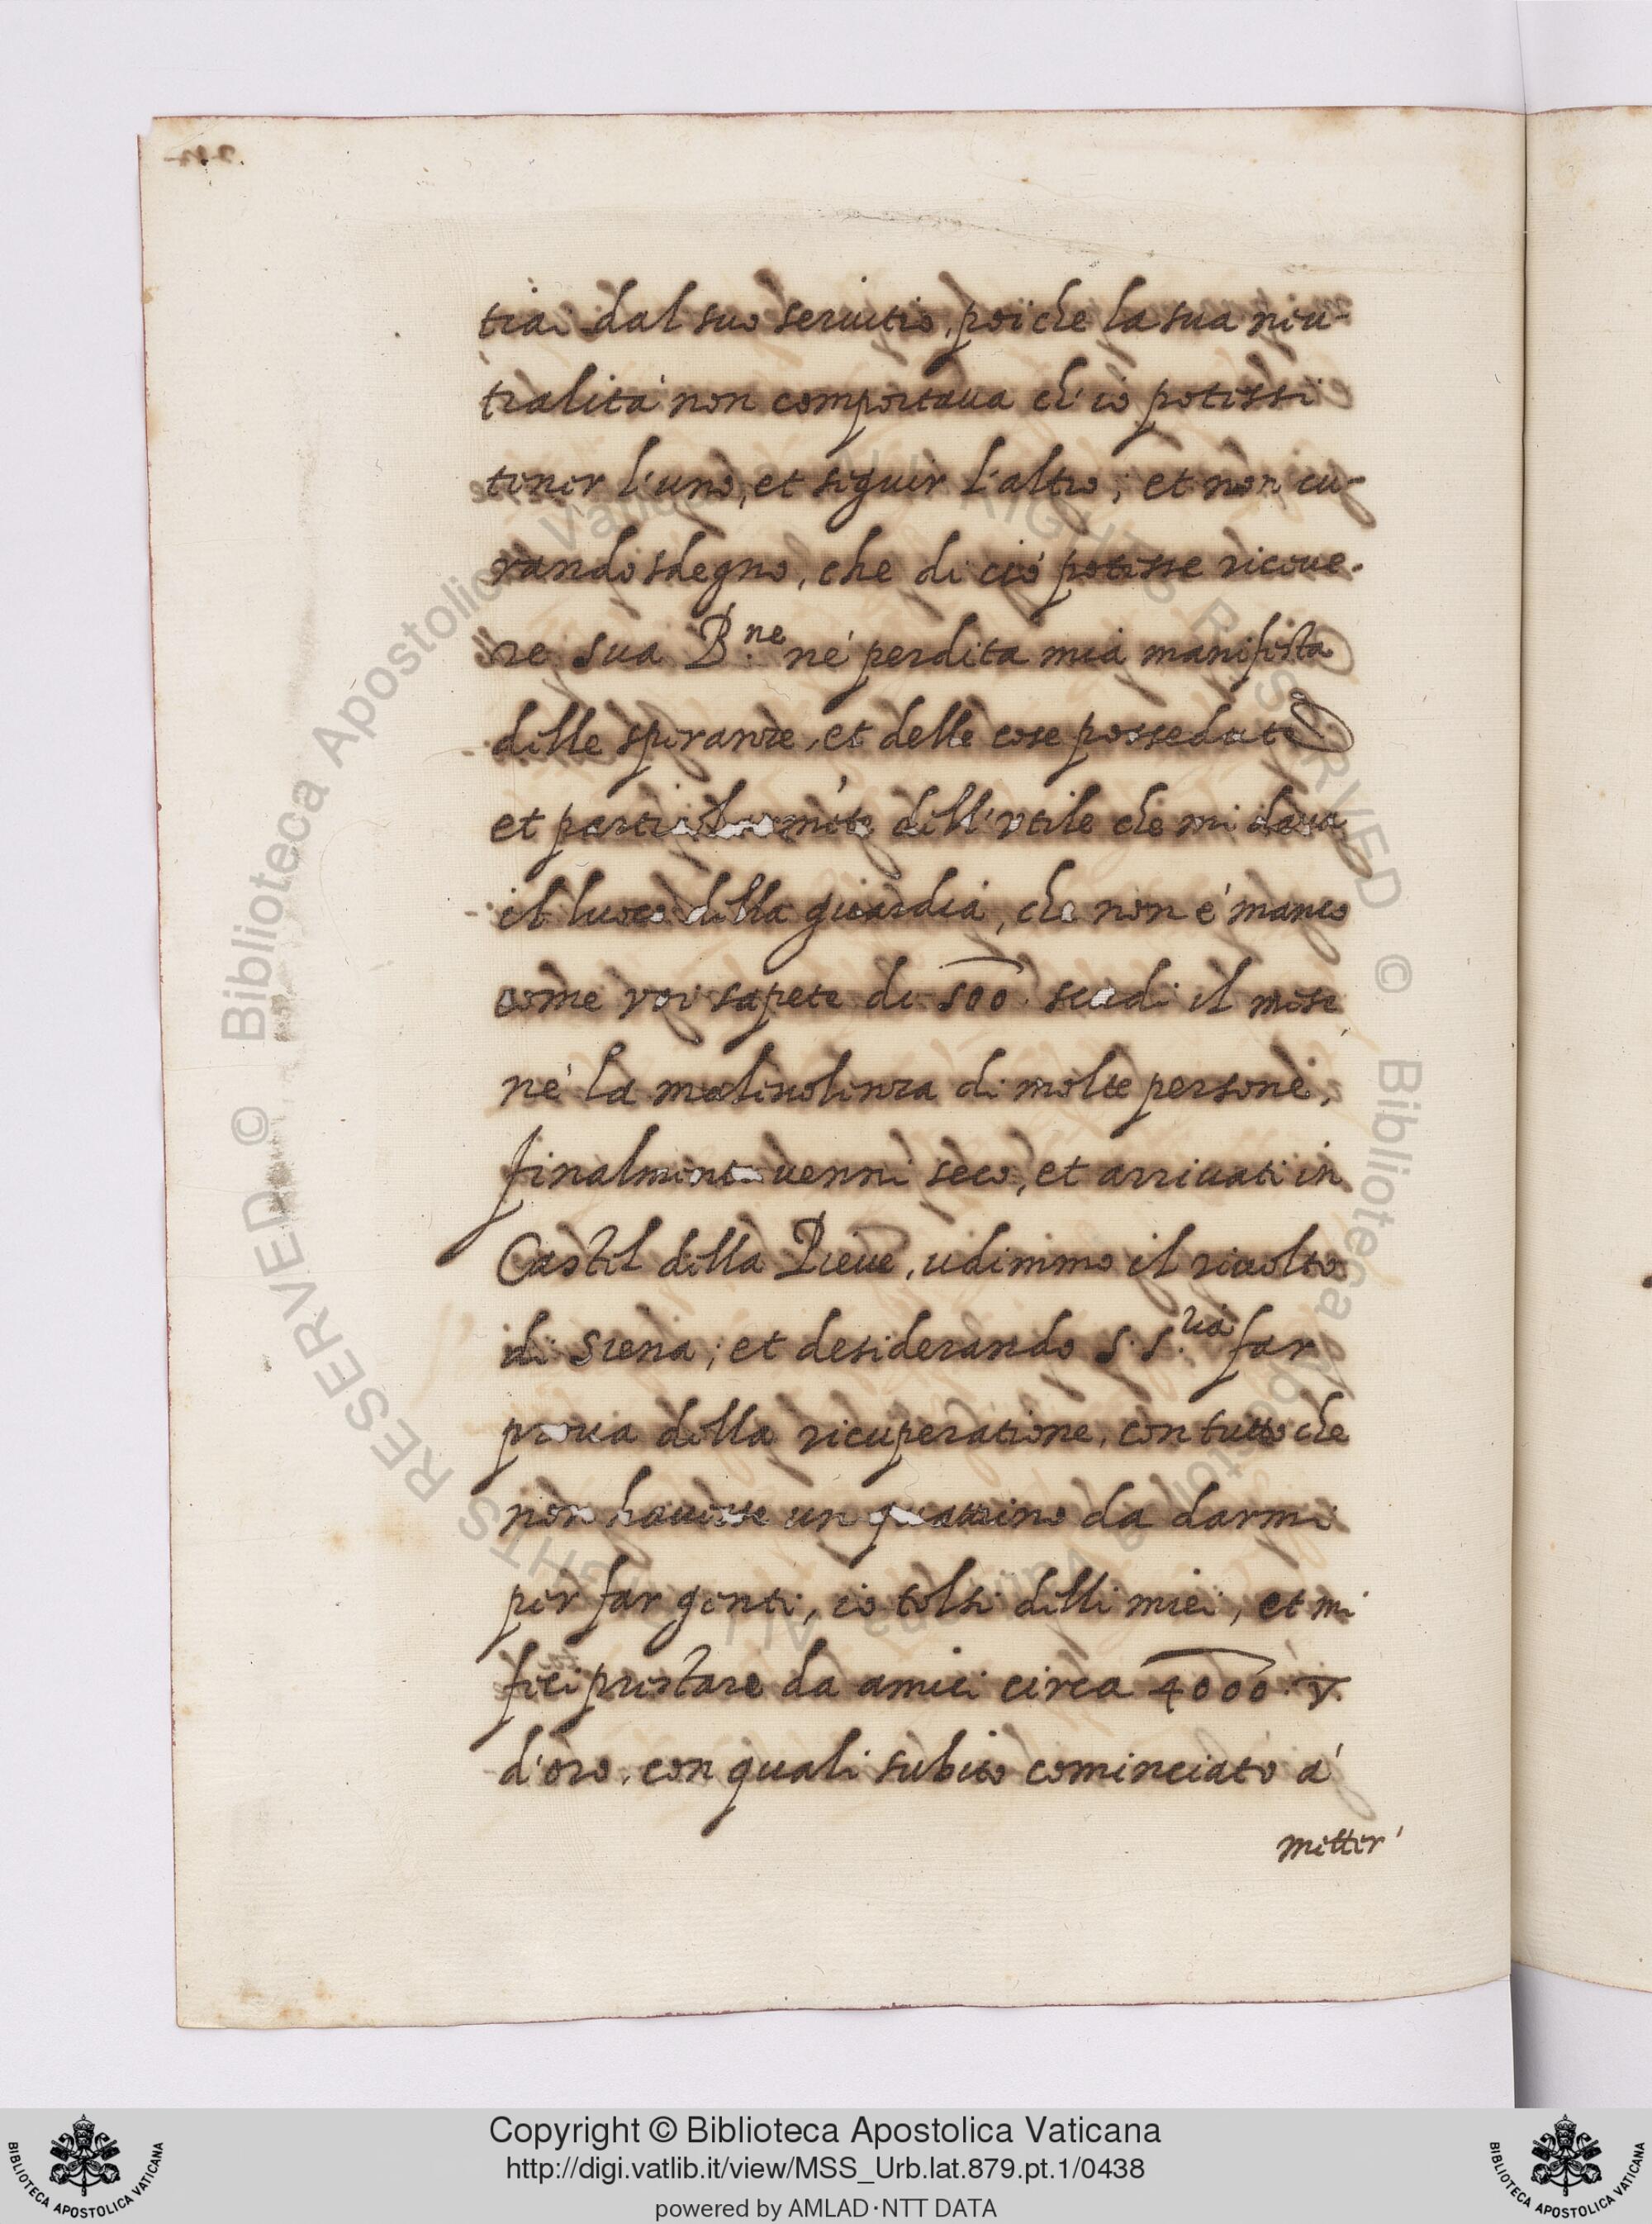 tiai dal suo seruitio, poi che la sua neu-
tralità non comportaua ch'io potessi
tener l'uno, et seguir l'altro; et non cu-
rando sdegno, che di ciò potesse riceue-
re sua B.ne né perdita mia manifesta
delle speranze, et delle cose possedute
et particolarmẽte dell'vtile che mi daua
il luoco della guardia, che non é manco
come voi sapete di 500. scudi il mese
né la maliuolenza di molte persone,
finalmente uenni seco, et arriuati in
Castel della Pieue, udimmo il riuolto
di Siena; et desiderando S. S.ria far
proua della ricuperatione, con tutto che
non hauesse un quattrino da darmi
per far genti, io tolsi delli miei, et mi
feci prestare da amici circa 4000. ▽
d'oro, con quali subito cominciato á
metter
Copyright © Biblioteca Apostolica Vaticana
http://digi.vatlib.it/view/MSS_Urb.lat.879.pt.1/0438
powered by AMLAD·NTT DATA
BIBLIOTECA APOSTOLICA VATICANA
BIBLIOTECA APOSTOLICA VATICANA